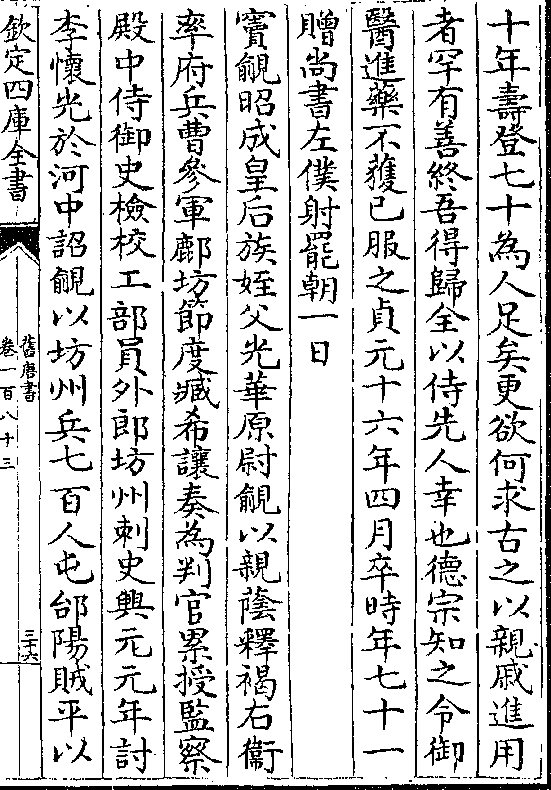 十年壽登七十為人足矣更欲何求古之以親戚進用
者罕有善終吾得歸全以侍先人幸也德宗知之令御
醫進藥不獲已服之貞元十六年四月卒時年七十一
贈尚書左僕射罷朝一日
竇覦昭成皇后族姪父光華原尉覦以親蔭釋褐右衞
率府兵曹參軍鄜坊節度臧希讓奏為判官累授監察
殿中侍御史檢校工部員外郎坊州刺史興元元年討
李懷光於河中詔覦以坊州兵七百人屯郃陽賊平以
欽定四庫全書
舊唐書
卷一百八十三
三十六